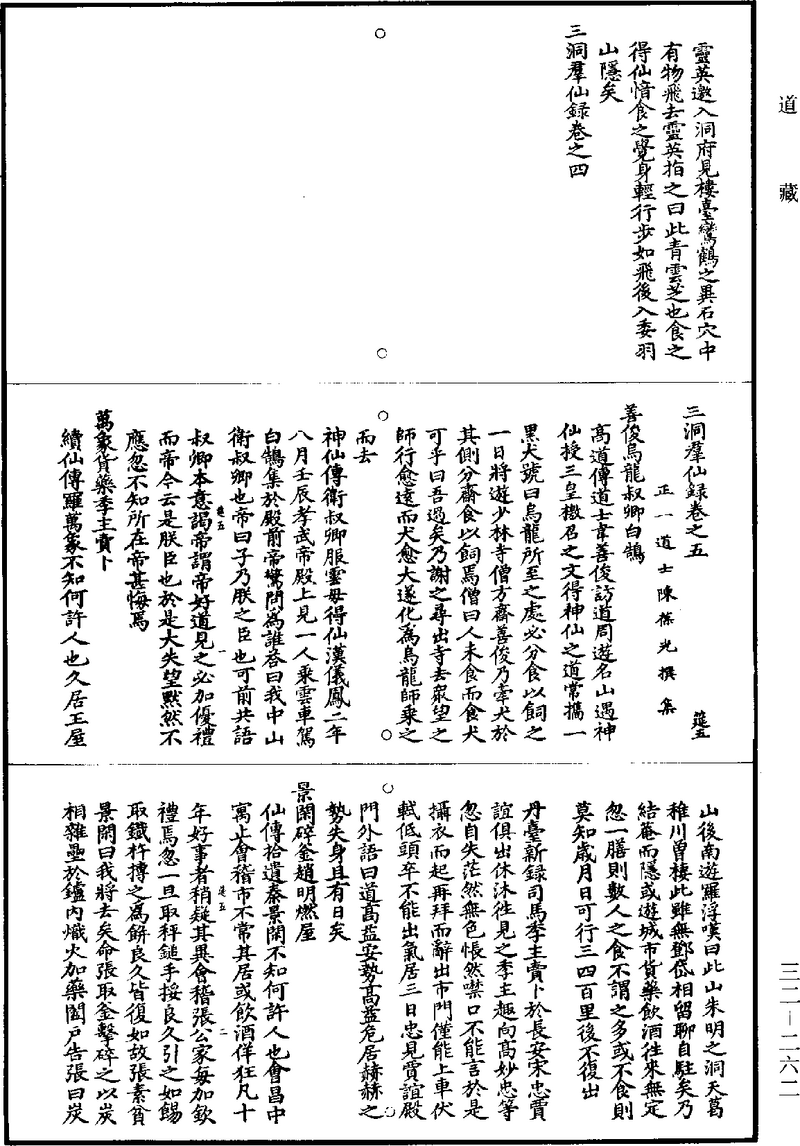 道藏
靈英邀入洞府見樓臺鸞鶴之異石穴中
有物飛去靈英指之曰此青雲芝也食之
得仙愔食之覺身輕行步如飛後入委羽
山隱矣
三洞羣仙録卷之四
三洞羣仙録卷之五
筵五
正一道士陳葆光撰集
善俊烏龍叔卿白鵠
高道傳道士韋善俊訪道周遊名山遇神
仙授三皇檄召之文得神仙之道常攜一
黑犬號曰烏龍所至之處必分食以飼之
一日將遊少林寺僧方齋善俊乃牽犬於
其側分齋食以飼焉僧曰人未食而食犬
可乎曰吾過矣乃謝之尋出寺去衆望之
師行愈遠而犬愈大遂化爲烏龍師乘之
而去
神仙傳衛叔卿服雲母得仙漢儀鳳二年
八月壬辰孝武帝殿上見一人乘雲車駕
白鵠集於殿前帝驚問爲誰荅曰我中山
衛叔卿也帝曰子乃朕之臣也可前共語
叔卿本意謁帝謂帝好道見之必加優禮
而帝今云是朕臣也於是大失望黙然不
應忽不知所在帝甚悔焉
萬象貨藥季主賣卜
續仙傳羅萬象不知何許人也久居王屋
筵五
一
山後南遊羅浮嘆曰此山朱明之洞天葛
稚川曽棲此雖無鄧岱相留聊自駐矣乃
結菴而隱或遊城市貨藥飲酒往來無定
忽一膳則數人之食不謂之多或不食則
莫知歲月日可行三四百里後不復出
丹臺新録司馬季主賣卜於長安宋忠賈
誼俱出休沐徃見之季主趣向高妙忠等
忽自失茫然無色悵然噤口不能言於是
攝衣而起再拜而辭出市門僅能上車伏
軾低頭卒不能出氣居三日忠見賈誼殿
門外語曰道高益安勢高益危居赫赫之
勢失身且有日矣
景閑碎釜趙明燃屋
仙傳拾遺秦景閑不知何許人也會昌中
寓止會稽市不常其居或飲酒佯狂凡十
年好事者稍疑其異會稽張公家每加欽
禮焉忽一旦取秤鎚手挼良久引之如餳
取鐵杵摶之爲餅良久皆復如故張素貧
景閑曰我將去矣命張取釜擊碎之以炭
相雜壘於鑪內熾火加藥闔戶告張曰炭
筵五
二
三二－二六二